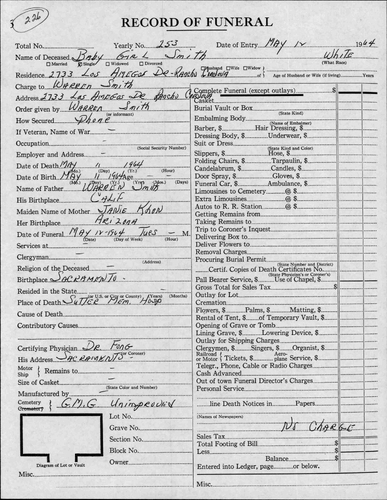 226
RECORD OF FUNERAL
Total No. Yearly No. 253 Date of Entry MAY 12 1964
Name of Deceased BABY GIRL SMITH WHITE
Married Single Widowed Divorced Husband Wife Widow (What Race)
Residence 2733 LOS AMEGOS DR - RANCHO CORDOVA Age of Husband or Wife (if living) Years
Charge to WARREN SMITH
Address 2733 LOS AMEGOS DR RANCHO CORDOVA
Order given by WARREN SMITH
(or informant)
How Secured PHONE
If Veteran, Name of War
Occupation
(Social Security Number)
Employer and Address
Date of Death MAY 11 1964
(Mo.) (Day) (Yr.) (Hour)
Date of Birth MAY 11 1964 Age
(Mo.) (Day) (Yr.) (Days)
Name of Father WARREN SMITH
His Birthplace CALIF
Maiden Name of Mother
Her Birthplace ARIZONA
Date of Funeral MAY-12-1964 TUES - M.
(Date) (Day of Week) (Hour)
Services at
Clergyman
(Address)
Religion of the Deceased
Birthplace SACRAMENTO
Resided in the State
(or U.S. or City or County) (Years) (Months)
Place of Death SUTTER MEM. HOSP
Cause of Death
Contributory Causes
Certifying Physician DR FONG
(or Coroner)
His Address SACRAMENTO
Motor Ship Remains to
Size of Casket
(State Color and Number)
Manufactured by
Cemetery Crematory G.M.G UNIMPROVED
Lot No.
Grave No.
Section No.
Block No.
Owner
Diagram of Lot or Vault
Misc.
Complete Funeral (except outlays) $
Casket
Burial Vault or Box
(State Kind)
Embalming Body
(Name of Embalmer)
Barber, $ Hair Dressing, $
Dressing Body, $ Underwear, $
Suit or Dress
(State Kind and Color)
Slippers, $ Hose, $
Folding Chairs, $ Tarpaulin, $
Candelabrum, $ Candles, $
Door Spray, $ Gloves, $
Funeral Car, $ Ambulance, $
Limousines to Cemetery @ $
Extra Limousines @ $
Autos to R. R. Station @ $
Getting Remains from
Taking Remains to
Trip to Coroner's Inquest
Delivering Box to
Deliver Flowers to
Removal Charges
Procuring Burial Permit
(State Number and District)
Certif. Copies of Death Certificates No.
(State Physician's or Coroner's)
Pall Bearer Service, $ Use of Chapel, $
Gross Total for Sales Tax $
Outlay for Lot
Cremation
Flowers, $ Palms, $ Matting, $
Rental of Tent, $ of Temporary Vault, $
Opening of Grave or Tomb
Lining Grave, $ Lowering Device, $
Outlay for Shipping Charges
Clergymen, $ Singers, $ Organist, $
Railroad or Motor Tickets, $ Aeroplane Service, $
Telegr., Phone, Cable or Radio Charges
Cash Advanced
Out of town Funeral Director's Charges
Personal Service
line Death Notices in Papers
(Names of Newspapers)
NO CHARGE
Sales Tax
Total Footing of Bill $
Less $
Balance $
Entered into Ledger, page or below.
Misc.